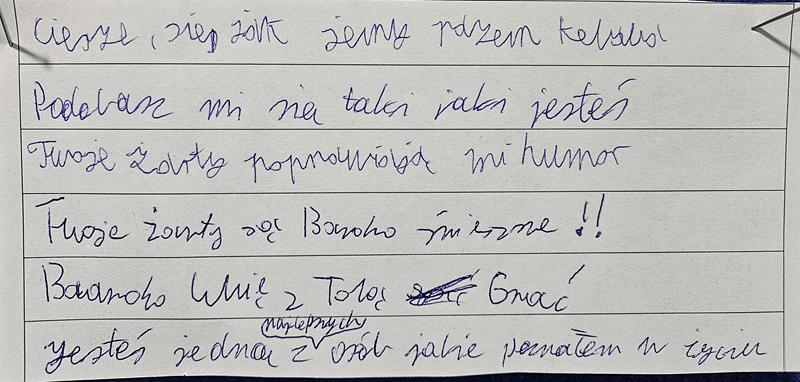 Ciesze, się żak jemy razem kebaba
Podobasz mi się taki jaki jesteś
Twoje żarty poprawiają mi humor
Twoje żarty są Bardzo śmieszne !!
Baardzo lubię z Tobą Grać
jesteś jedną z najlepszych osób jakie poznałem w życiu